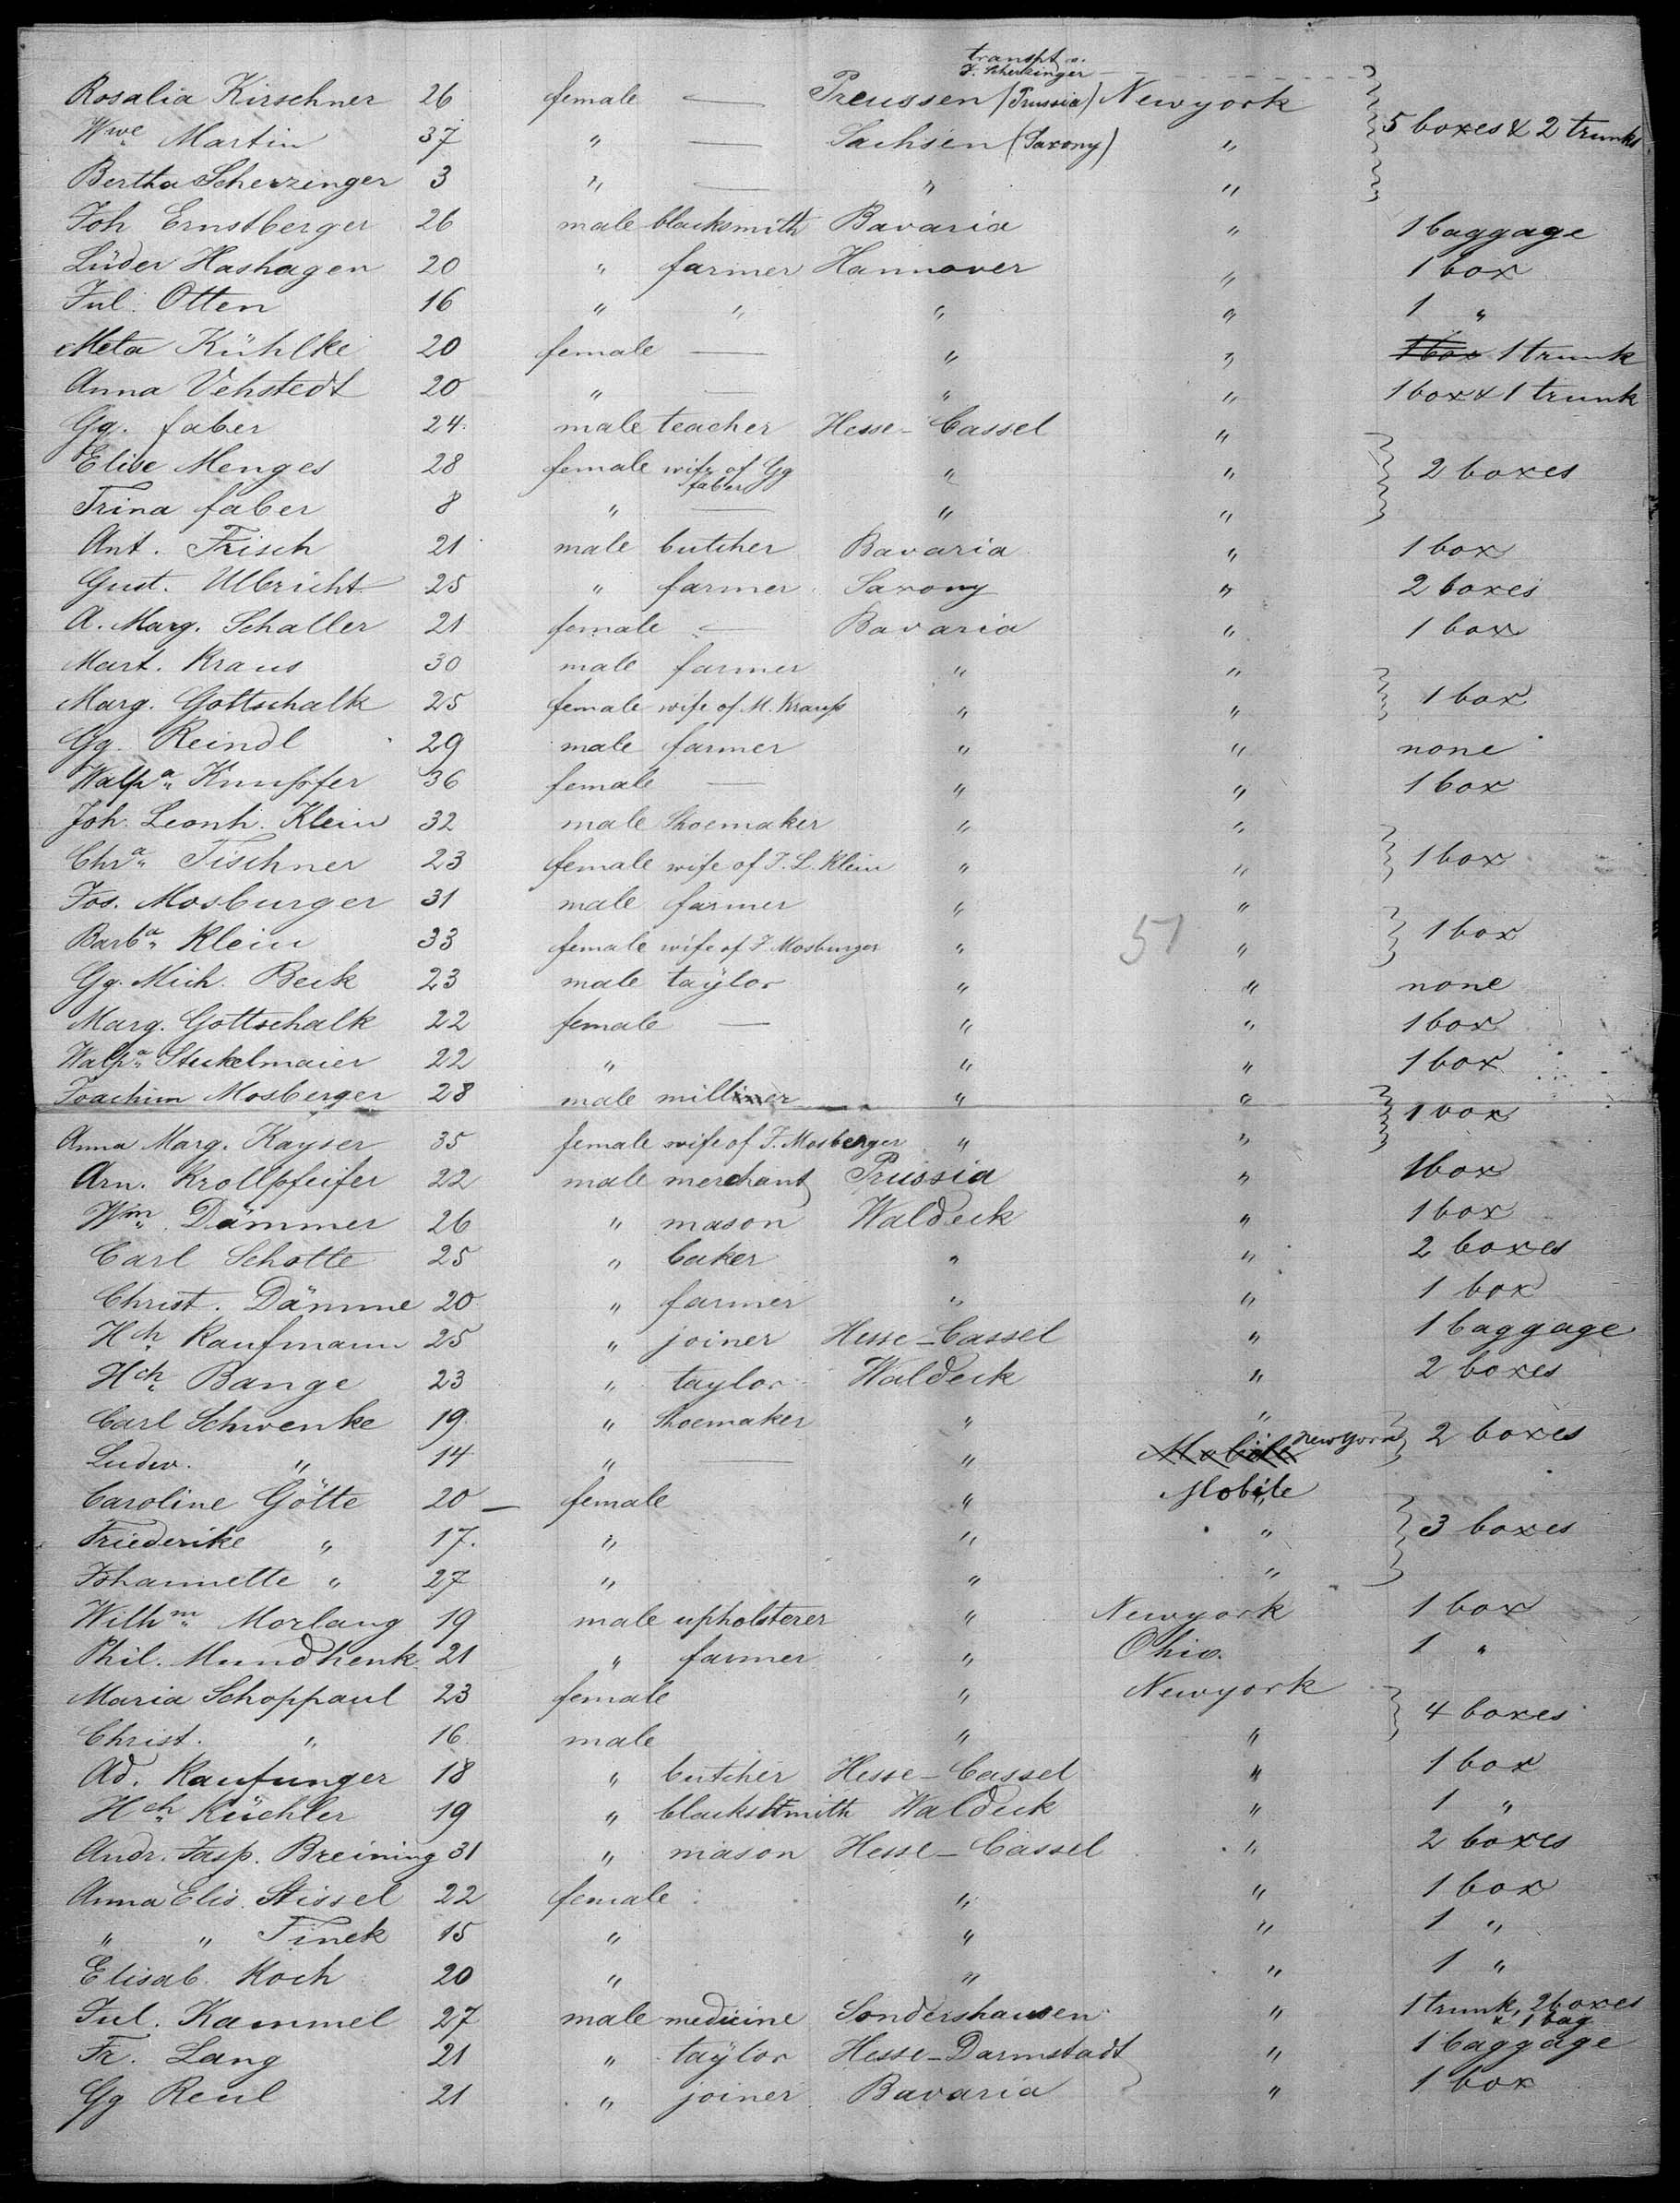 transpt v.
F. Scherzinger
Rosalia Kirschner 26 female — Preussen (Prussia) Newyork
Wwe Martin 37 " — Sachsen (Saxony) " 5 boxes & 2 trunks
Bertha Scherzinger 3 " — " "
Joh Ernstberger 26 male blacksmith Bavaria " 1 baggage
Lüder Hashagen 20 " farmer Hannover " 1 box
Jul. Otten 16 " " " " 1 "
Meta Kühlke 20 female — " " 1 box 1 trunk
Anna Vehstedt 20 " — " " 1 box & 1 trunk
Gg. faber 24 male teacher Hesse-Cassel "
Elise Menges 28 female wife of Gg faber " " 2 boxes
Trina faber 8 " — " "
Ant. Frisch 21 male butcher Bavaria " 1 box
Gust. Ulbricht 25 " farmer Saxony " 2 boxes
A. Marg. Schaller 21 female — Bavaria " 1 box
Mart. Kraus 30 male farmer " "
Marg. Gottschalk 25 female wife of M. Krauß " " 1 box
Gg. Reindl 29 male farmer " " none
Walpa Knupfer 36 female — " " 1 box
Joh. Leonh. Klein 32 male Shoemaker " "
Chra Tischner 23 female wife of J. L. Klein " " 1 box
Jos. Mosburger 31 male farmer " "
Barba Klein 33 female wife of J. Mosburger " 51 " 1 box
Gg. Mich. Beck 23 male taylor " " none
Marg. Gottschalk 22 female — " " 1 box
Walpa Stukelmaier 22 " " " 1 box
Joachim Mosberger 28 male milliner " " 1 box
Anna Marg. Kayser 35 female wife of J. Mosberger " "
Arn. Krollpfeifer 22 male merchant Prussia " 1 box
Wm Dämmer 26 " mason Waldeck " 1 box
Carl Schotte 25 " baker " " 2 boxes
Christ. Dämme 20 " farmer " " 1 box
Hch Kaufmann 25 " joiner Hesse-Cassel " 1 baggage
Hch Bange 23 " taylor Waldeck " 2 boxes
Carl Schwenke 19 " Shoemaker " "
Ludw. " 14 " — " Mobile New York 2 boxes
Caroline Götte 20 — female " Mobile
Friederike " 17. " " " 3 boxes
Johannette " 27 " " "
Wilhm Morlang 19 male upholsterer " Newyork 1 box
Phil. Mundhenk 21 " farmer " Ohio. 1 "
Maria Schoppaul 23 female " Newyork
Christ. " 16 male " " 4 boxes
Ad. Kaufunger 18 " butcher Hesse-Cassel " 1 box
Hch Küchler 19 " blacksmith Waldeck " 1 "
Andr. Jasp. Breining 31 " mason Hesse-Cassel " 2 boxes
Anna Elis. Stissel 22 female " " 1 box
" " Finek 15 " " " 1 "
Elisab. Koch 20 " " " 1 "
Jul. Kammel 27 male medicine Sondershausen " 1 trunk, 2 boxes & 1 bag
Fr. Lang 21 " taylor Hesse-Darmstadt " 1 baggage
Gg Reul 21 " joiner Bavaria " 1 box